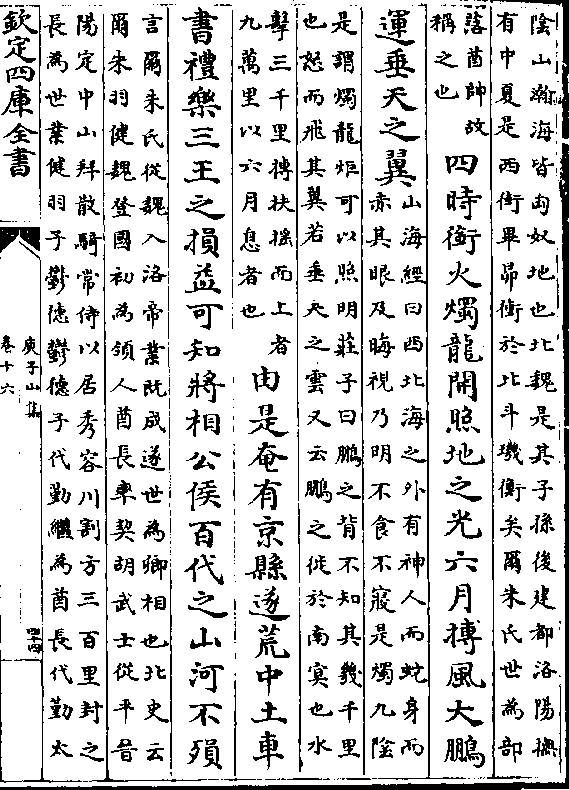 陰山瀚海皆匈奴地也北魏是其子孫後建都洛陽撫
有中夏是西街畢昴衝於北斗璣衡矣爾朱氏世為部
落酋帥故
稱之也
四時銜火燭龍開照地之光六月摶風大鵬
運垂天之翼
山海經曰西北海之外有神人而蛇身而
赤其眼及晦視乃明不食不寢是燭九陰
是謂燭龍炬可以照明莊子曰鵬之背不知其幾千里
也怒而飛其翼若垂天之雲又云鵬之徙於南冥也水
擊三千里摶扶搖而上者
九萬里以六月息者也
由是奄有京縣遂荒中土車
書禮樂三王之損益可知將相公侯百代之山河不殞
言爾朱氏從魏入洛帝業既成遂世為卿相也北史云
爾朱羽健魏登國初為領人酋長率契胡武士從平晉
陽定中山拜散騎常侍以居秀容川割方三百里封之
長為世業健羽子鬱德鬱德子代勤繼為酋長代勤太
欽定四庫全書
庾子山集
卷十六